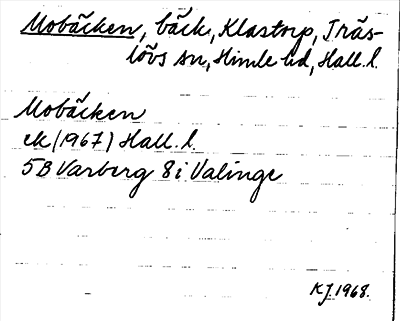 Mobäcken, bäck, Klastorp, Träs-
lövs sn, Himle hd, Hall. l.
Mobäcken
ek (1967) Hall. l.
5B Varberg 8i Valinge
KJ. 1968.